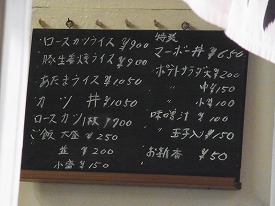 ロースカツライス ¥900
豚生姜焼ライス ¥900
あたまライス ¥1050
カツ丼 ¥1050
ロースカツ1枚 ¥700
ご飯 大盛 ¥250
並 ¥200
小盛 ¥150
特製
マーボー丼 ¥650
ポテトサラダ大 ¥200
〃 中 ¥150
〃 小 ¥100
味噌汁 ¥100
〃 玉子入 ¥150
お新香 ¥50